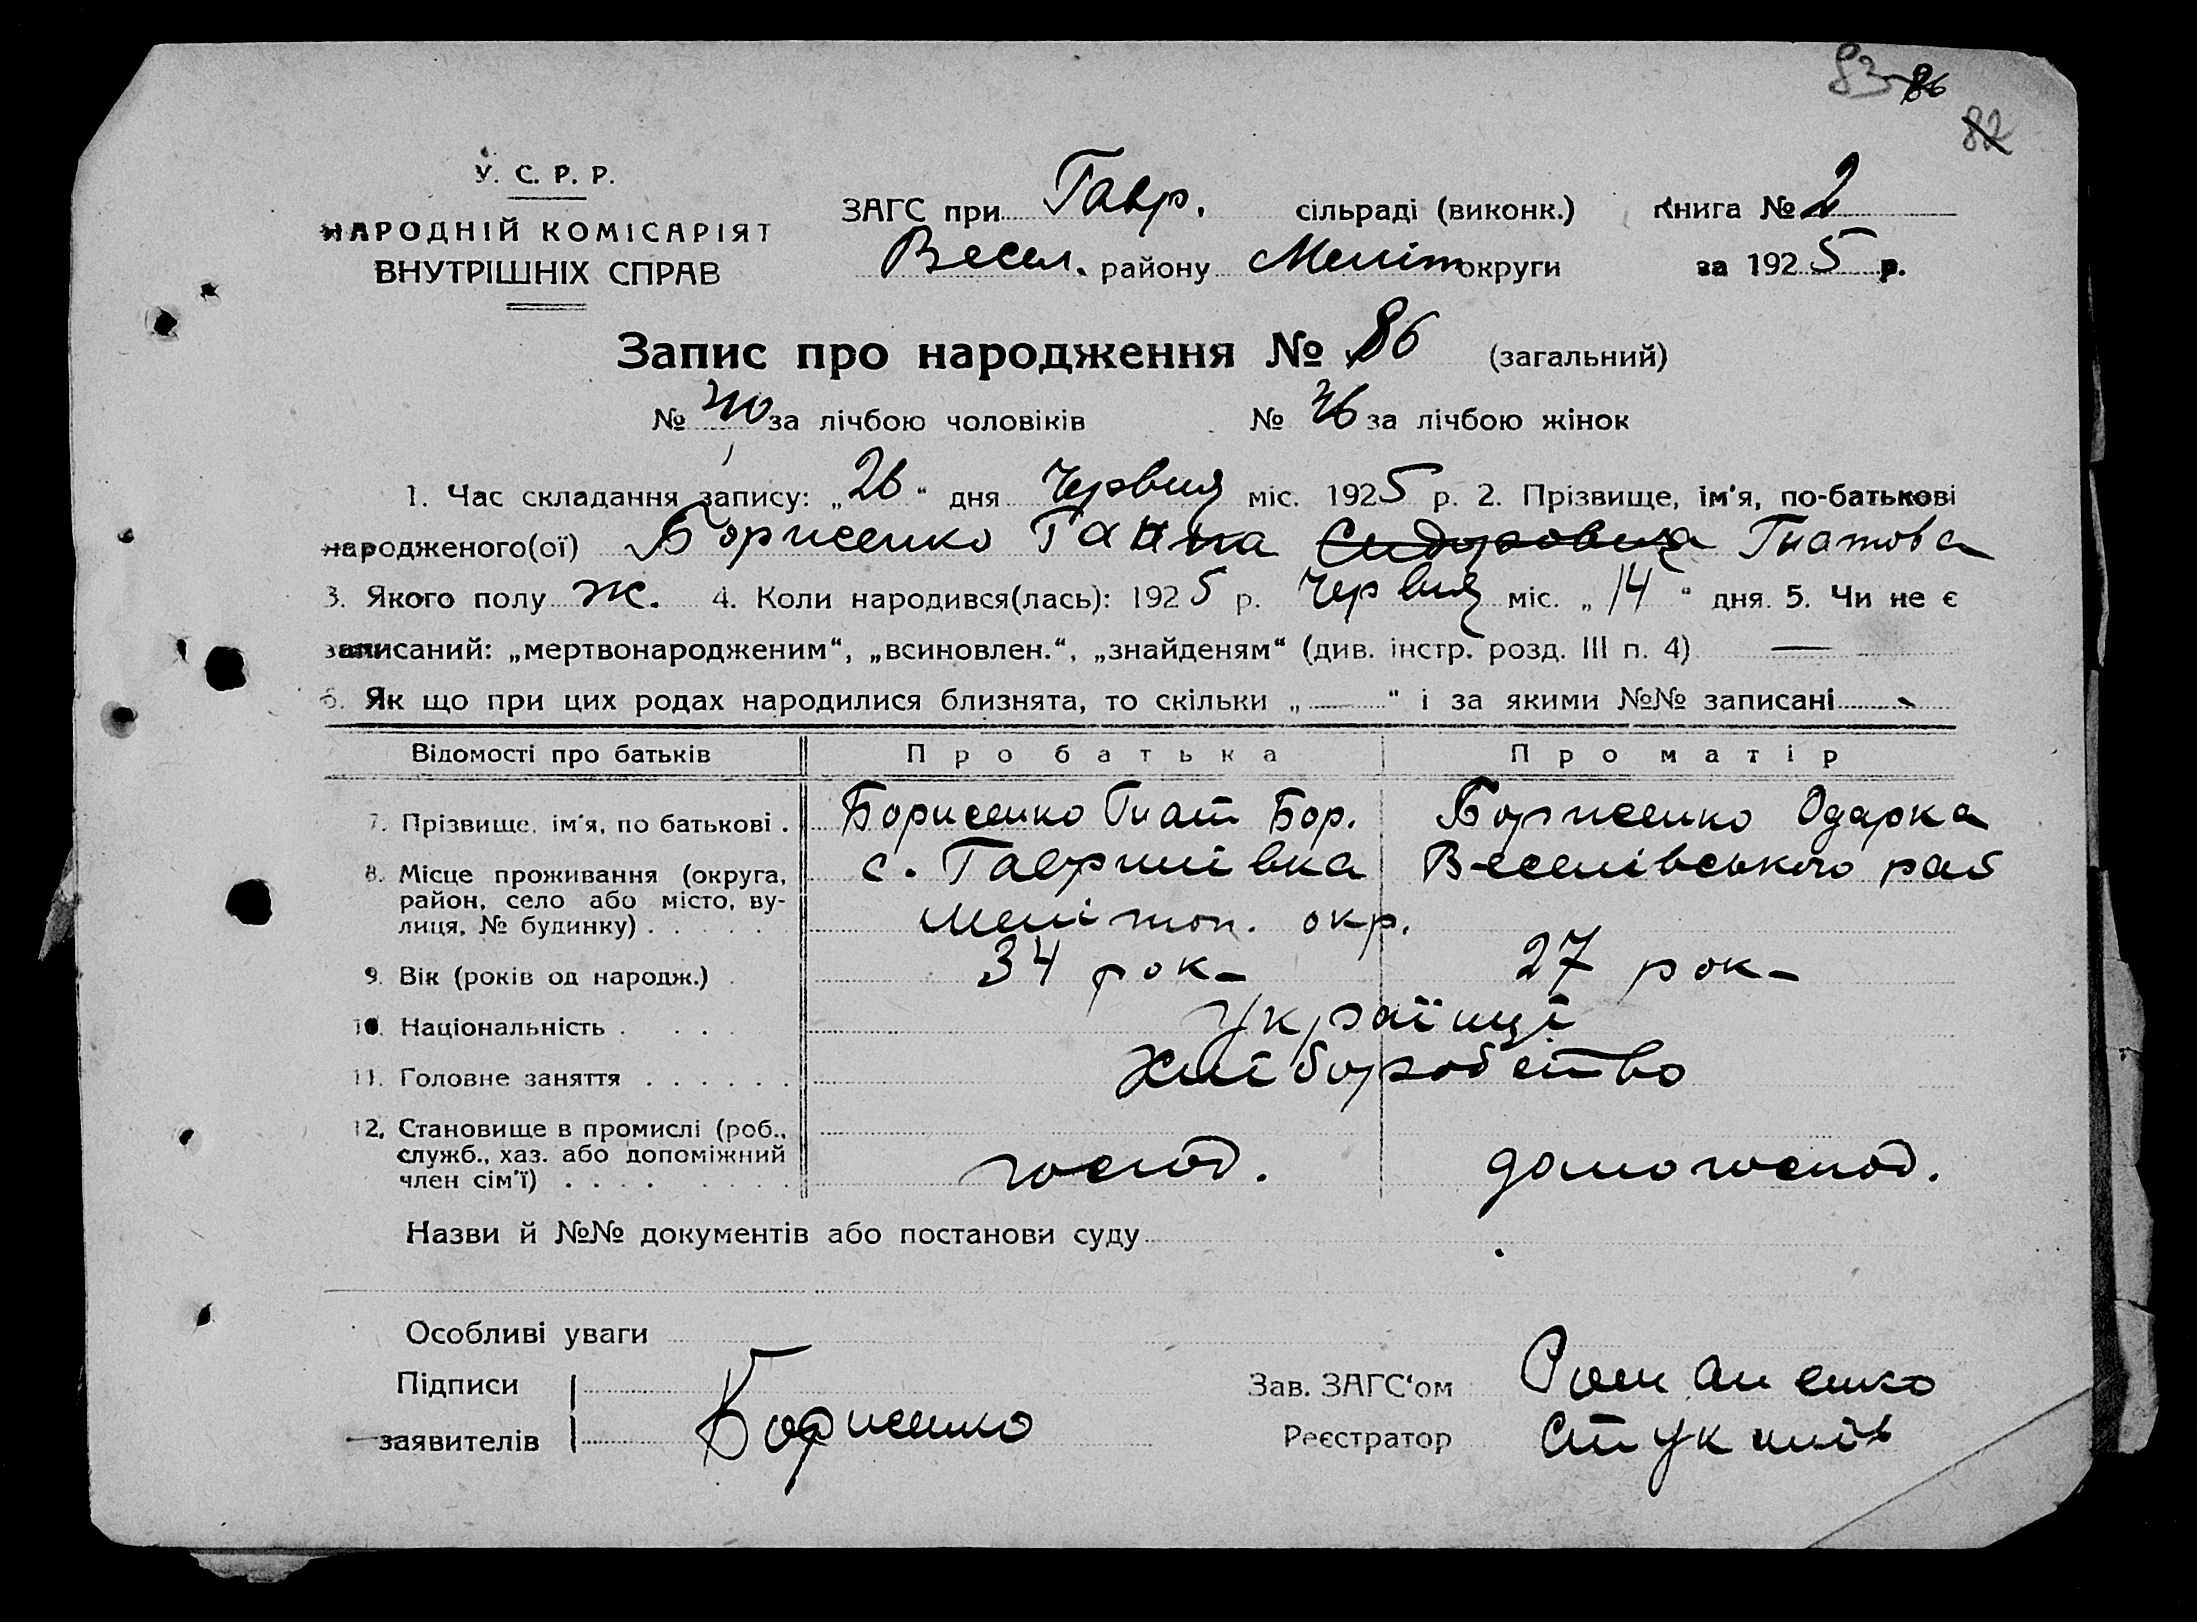 83 86
82
У. С. Р. Р.
НАРОДНІЙ КОМІСАРІЯТ
ВНУТРІШНІХ СПРАВ
ЗАГС при Гавр. сільраді (виконк.) Книга № 2
Весел. району Меліт округи за 1925 р.
Запис про народження № 86 (загальний)
№ 40 за лічбою чоловіків № 46 за лічбою жінок
1. Час складання запису: „26“ дня Червня міс. 1925 р. 2. Прізвище, ім'я, по-батькові
народженого(ої) Борисенко Ганна Сидоровна Гнатова
3. Якого полу ж. 4. Коли народився(лась): 1925 р. Червня міс. „14“ дня. 5. Чи не є
записаний: „мертвонародженим“, „всиновлен.“, „знайденям“ (див. інстр. розд. III п. 4) —
6. Як що при цих родах народилися близнята, то скільки „—“ і за якими №№ записані
Відомості про батьків Про батька Про матір
7. Прізвище, ім'я, по батькові . Борисенко Гнат Бор. Борисенко Одарка
8. Місце проживання (округа, с. Гаврилівка Веселівського рай
район, село або місто, ву-
лиця, № будинку) . . . . . Мелітоп. окр.
9. Вік (років од народж.) . 34 рок- 27 рок-
10. Національність . . . . Українці
11. Головне заняття . . . . . . Хліборобство
12. Становище в промислі (роб.,
служб., хаз. або допоміжний господ. домогоспод.
член сім'ї) . . . . . . . .
Назви й №№ документів або постанови суду
Особливі уваги
Підписи Зав. ЗАГС'ом Романенко
заявителів Борисенко Реєстратор